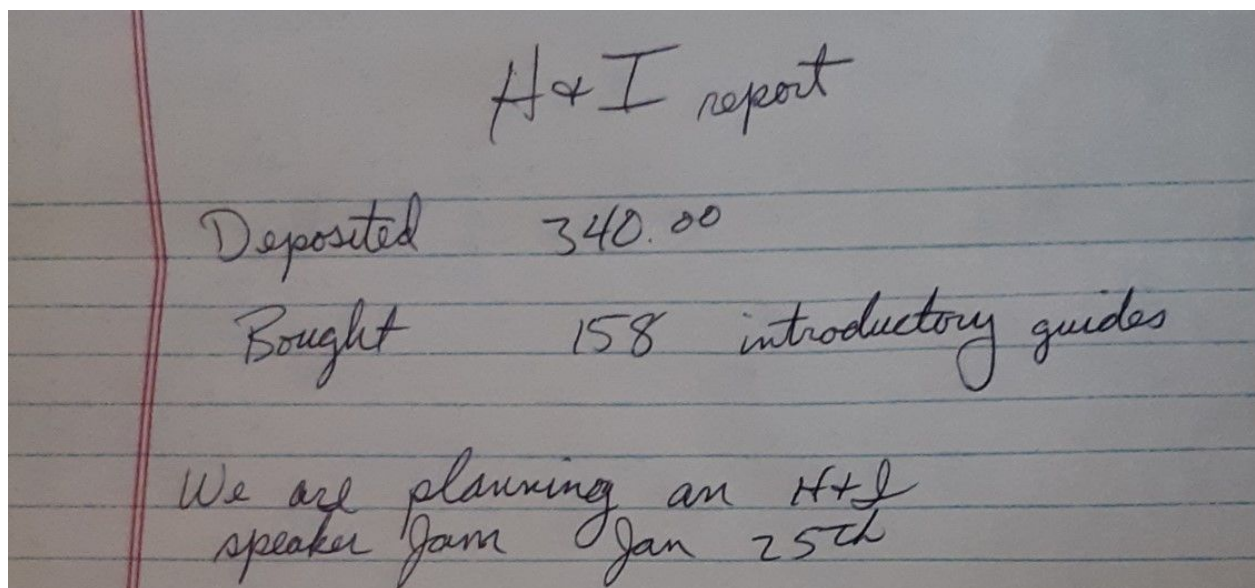 H & I report
Deposited 340.00
Bought 158 introductory guides
We are planning an H+I
speaker Jam Jan 25th